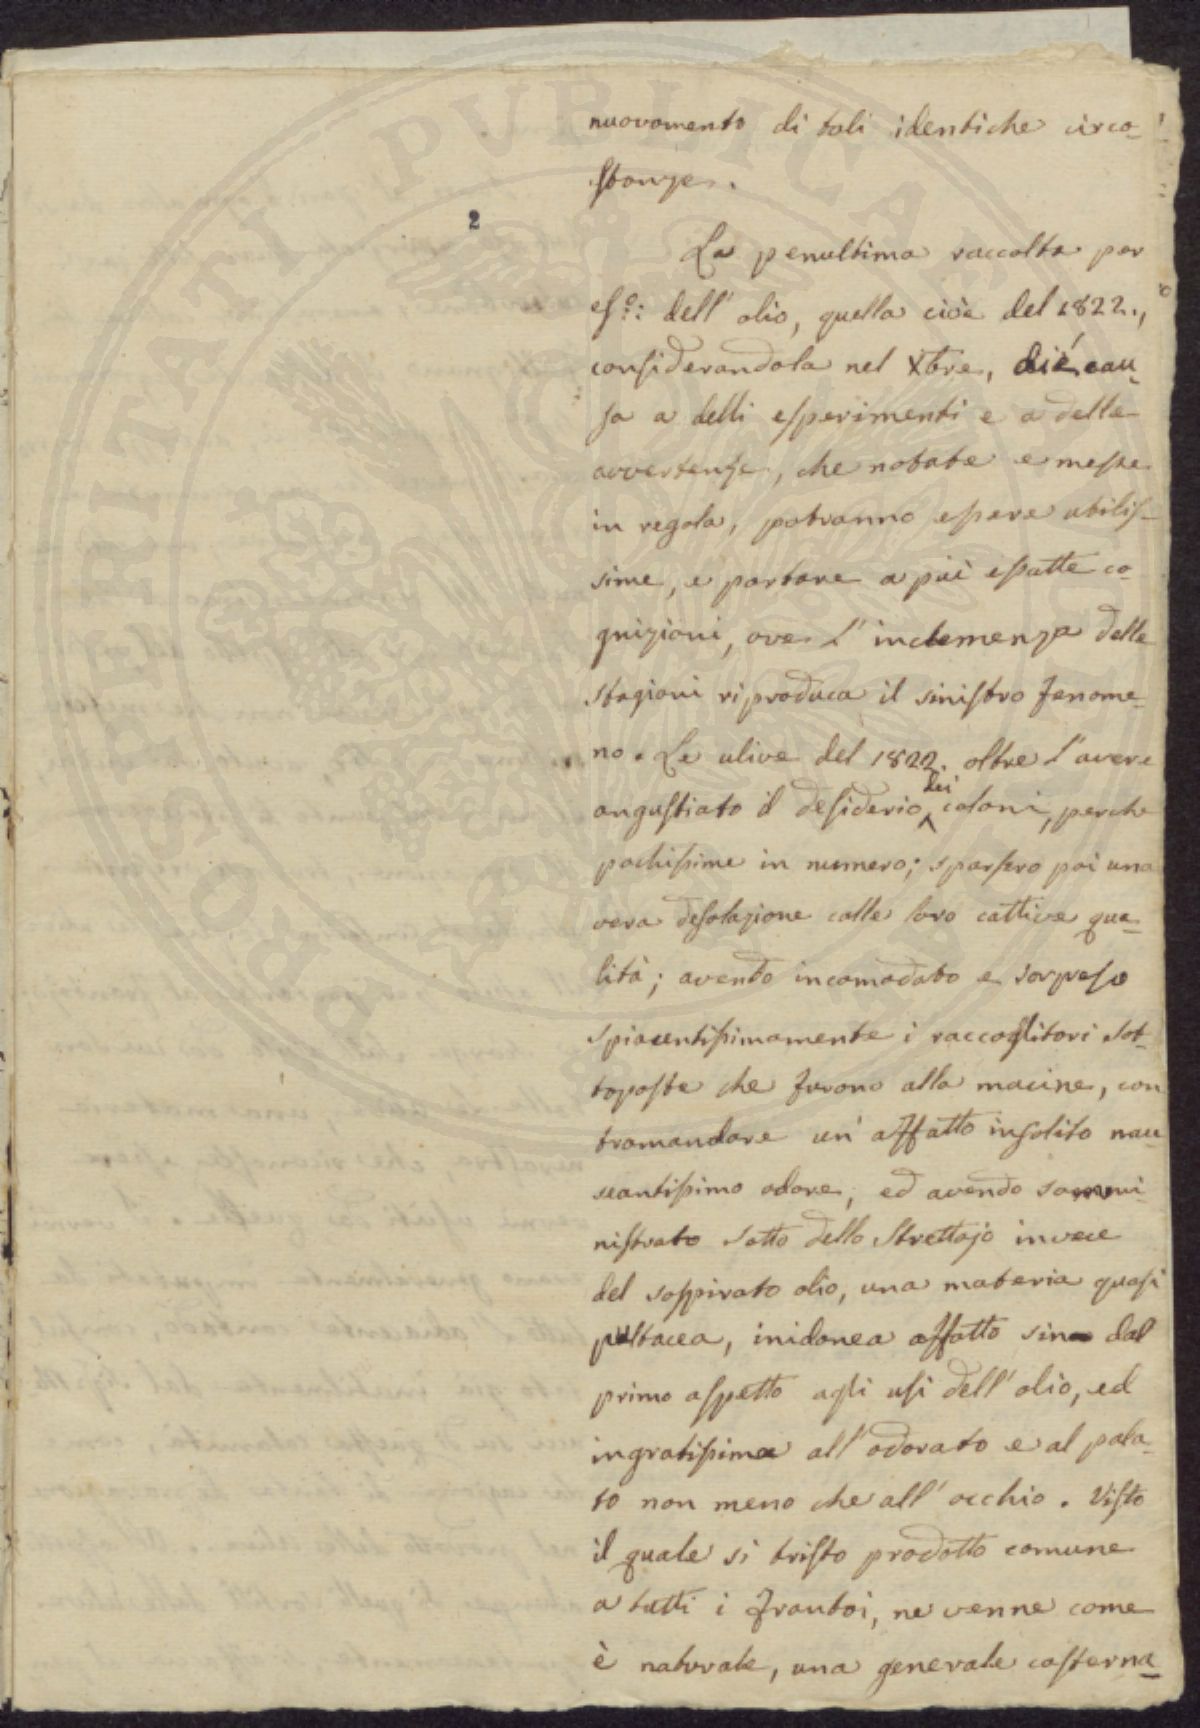 PROSPERITATI PUBLICAE
nuovamente di tali identiche circo-
stanze.
2
La penultima raccolta per
es.º: dell' olio, quella cioè del 1822.,
considerandola nel Xbre, diè cau-
sa a delli esperimenti e a delle
avvertenze, che notate e messe
in regola, potranno essere utilis-
sime, e portare a più esatte co-
gnizioni, ove l' inclemenza delle
stagioni riproduca il sinistro fenome-
no. Le ulive del 1822. oltre l'avere
angustiato il desiderio dei coloni, perche
pochissime in numero; sparsero poi una
vera desolazione colle loro cattive qua-
lità; avendo incomodato e sorpreso
spiacentissimamente i raccoglitori sot-
toposte che furono alla macine, con
tramandare un' affatto insolito nau
seantissimo odore; ed avendo sommi-
nistrato sotto dello strettojo invece
del sospirato olio, una materia quasi
pultacea, inidonea affatto sino dal
primo aspetto agli usi dell' olio, ed
ingratissima all' odorato e al pala-
to non meno che all' occhio. Visto
il quale si tristo prodotto comune
a tutti i frantoi, ne venne come
è naturale, una generale costerna-